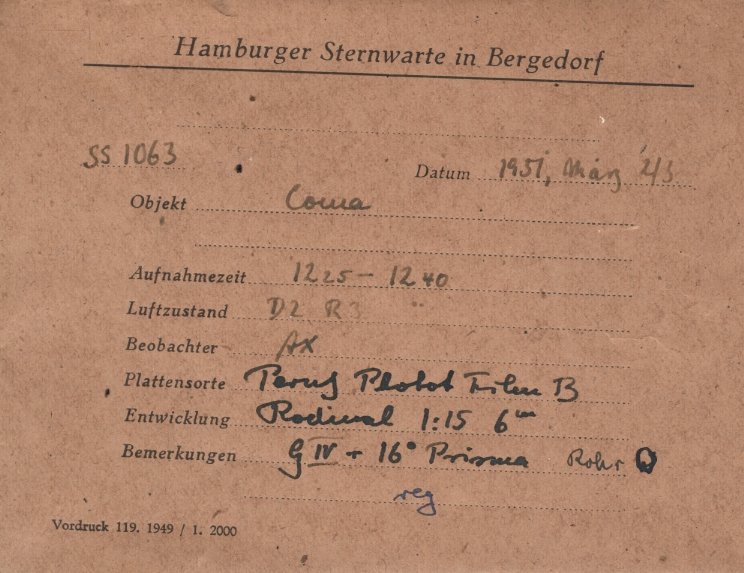 Hamburger Sternwarte in Bergedorf
SS 1063
Datum 1951, März 2/3
Objekt Coma
Aufnahmezeit 12 25 – 12 40
Luftzustand D2 R3
Beobachter AX
Plattensorte Perutz Photot Film B
Entwicklung Rodinal 1:15 6 m
Bemerkungen G IV + 16° Prisma Rohr
reg
Vordruck 119. 1949 / 1. 2000